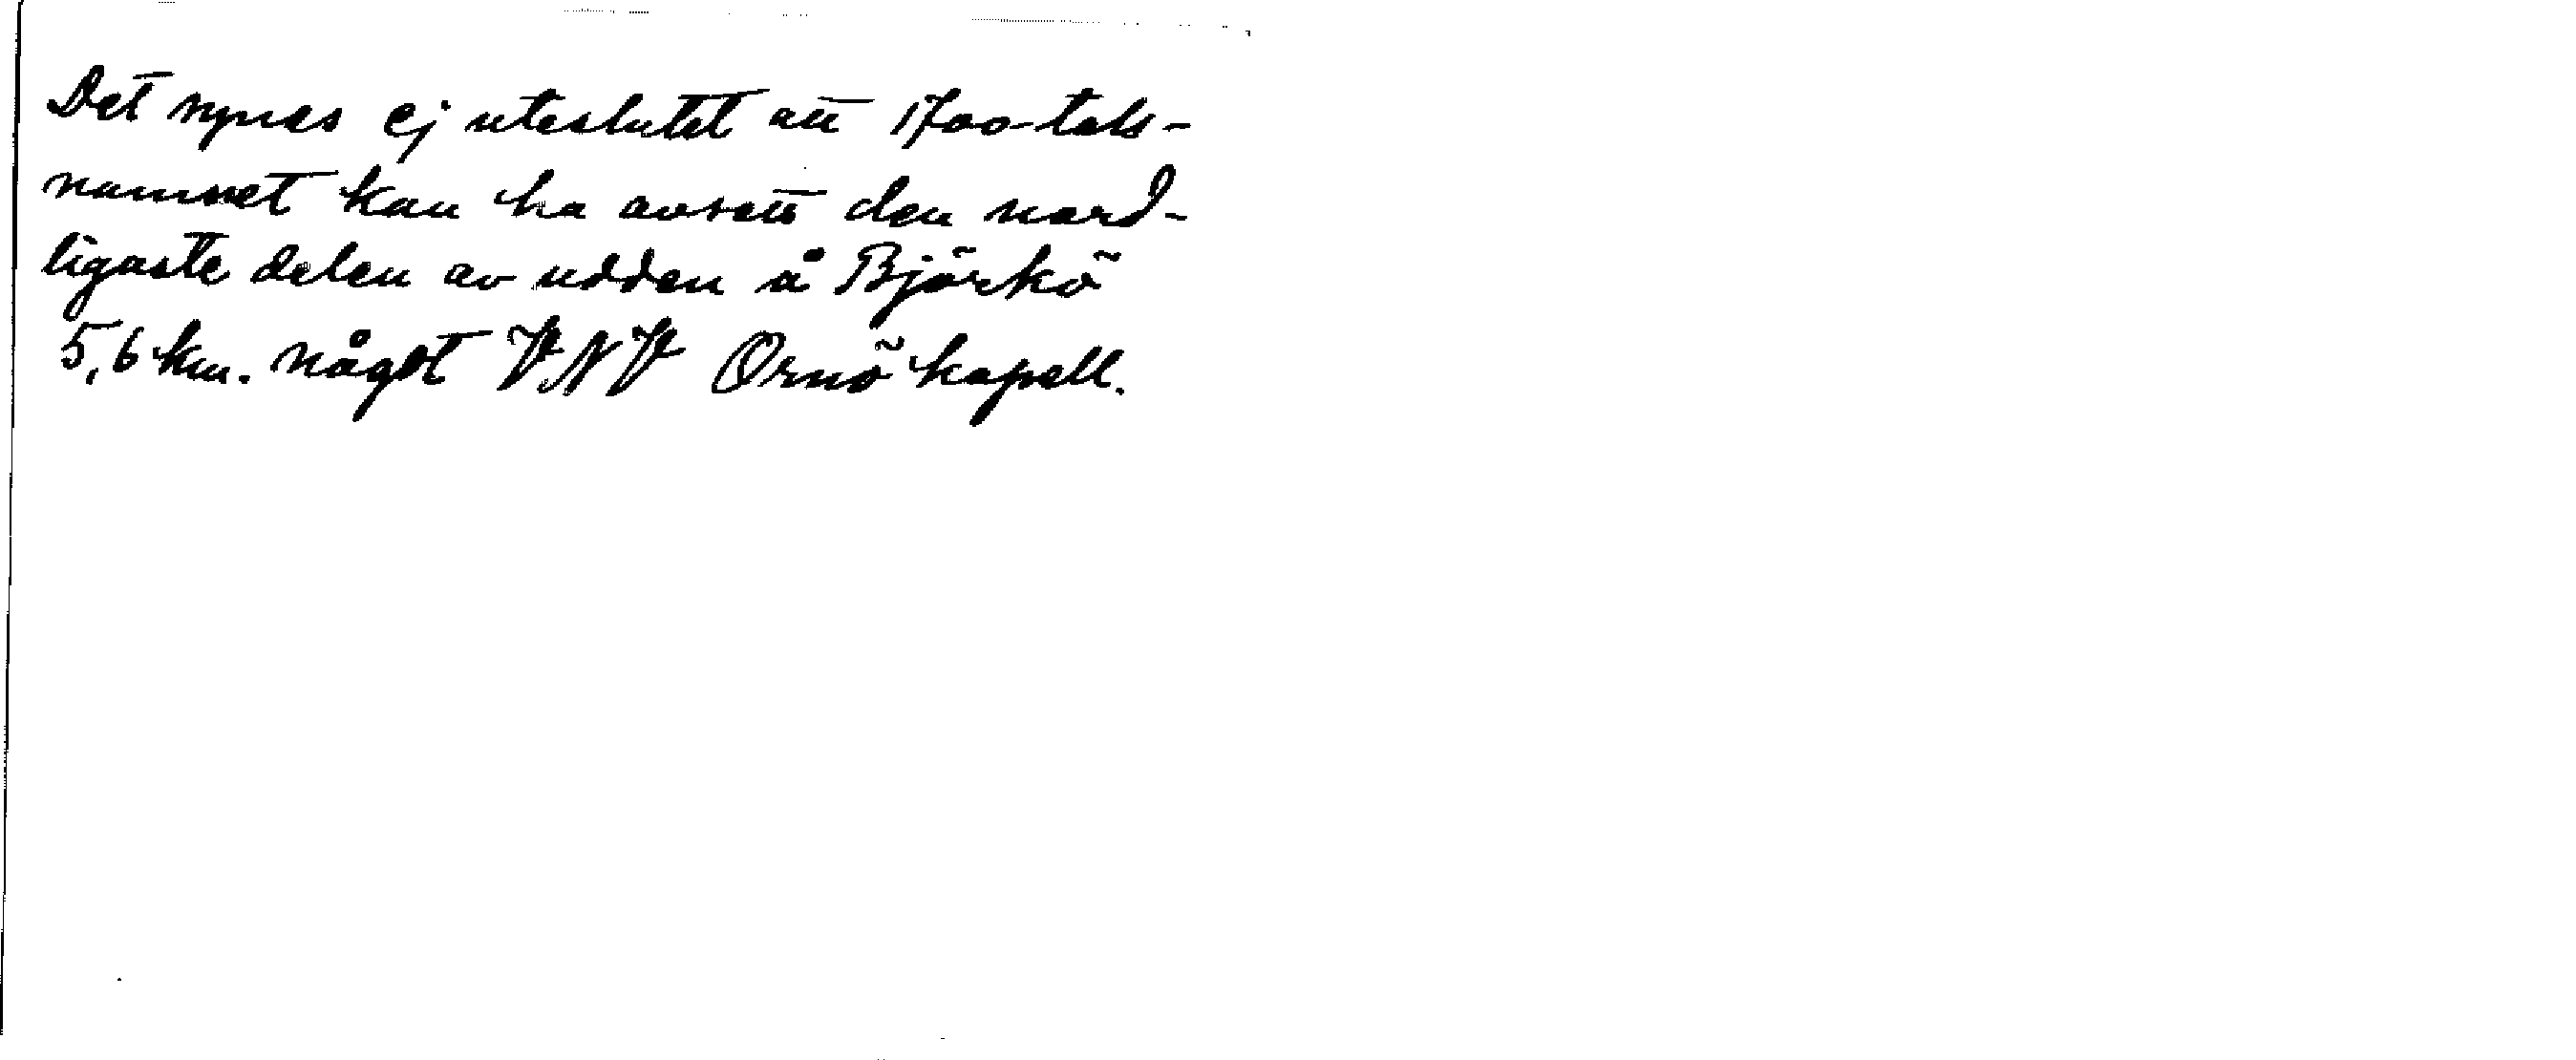 Det synes ej uteslutet att 1700-tals-
namnet kan ha avsett den nord-
ligaste delen av udden å Björkö
5,6 km. något VNV Ornö kapell.